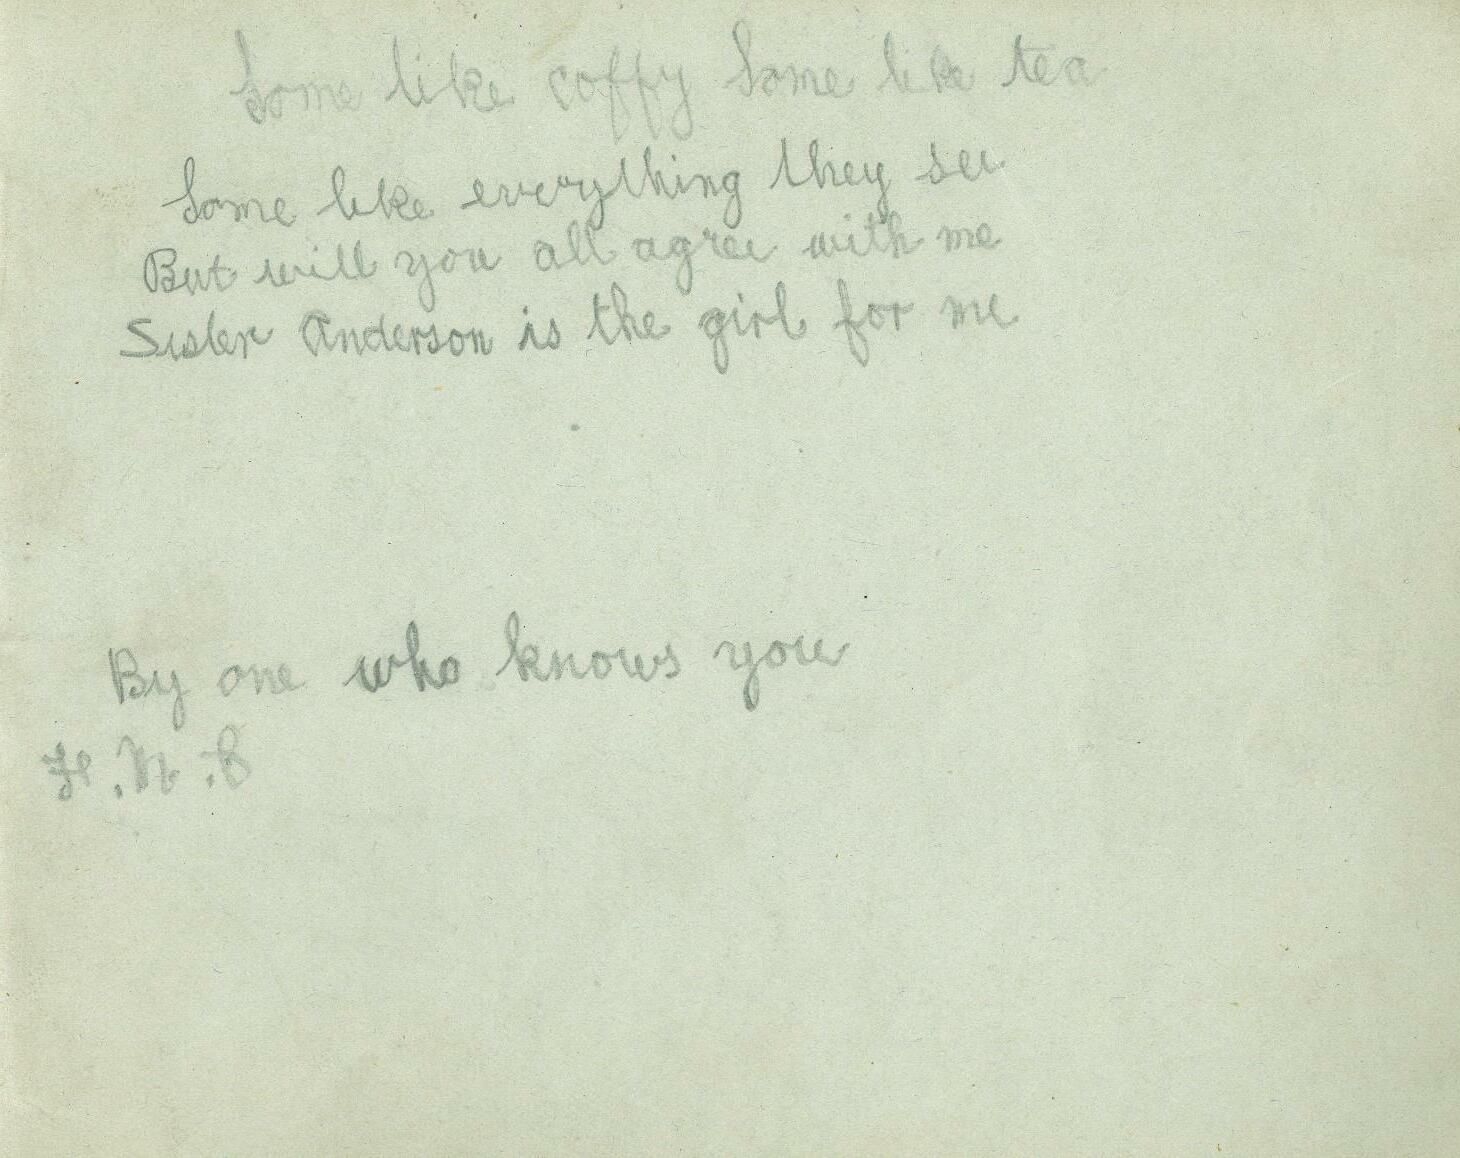 Some like coffy Some like tea
Some like everything they see
But will you all agree with me
Sister Anderson is the girl for me
By one who knows you